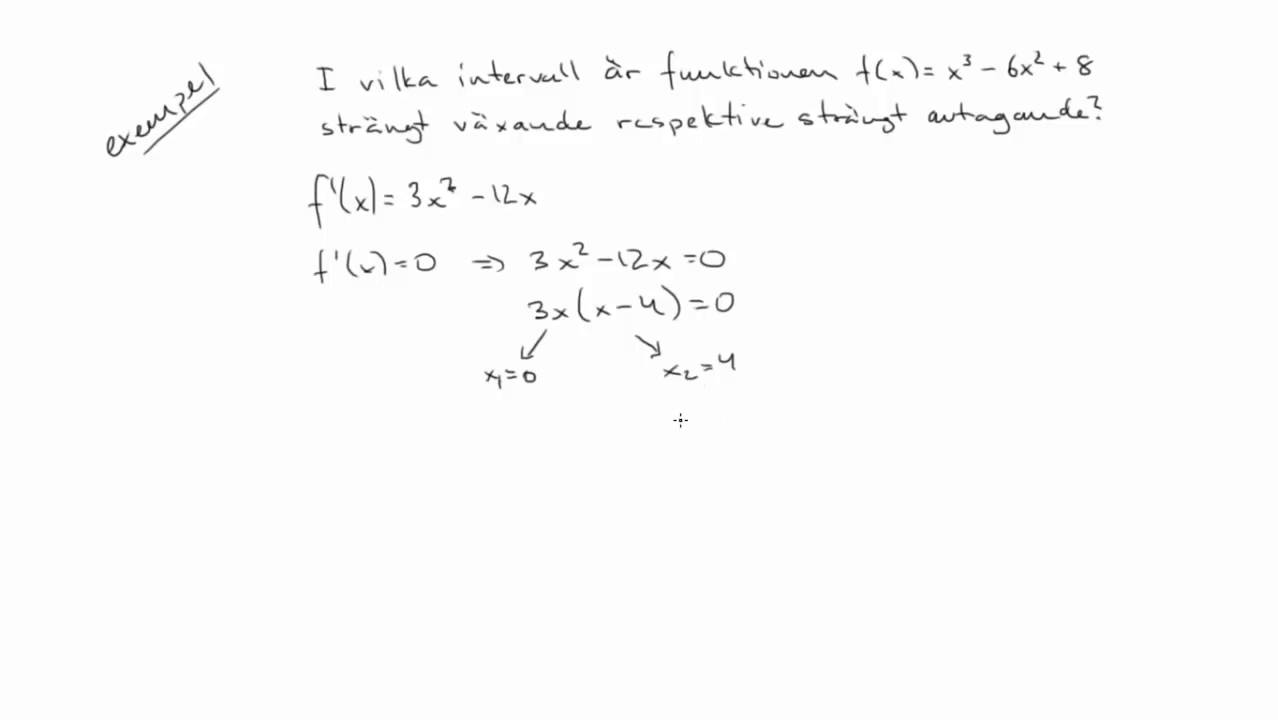 exempel
I vilka intervall är funktionen f(x) = x³ - 6x² + 8
strängt växande respektive strängt avtagande?
f'(x) = 3x² - 12x
f'(x) = 0 ⇒ 3x² - 12x = 0
3x(x - 4) = 0
↙ ↘
x₁ = 0 x₂ = 4